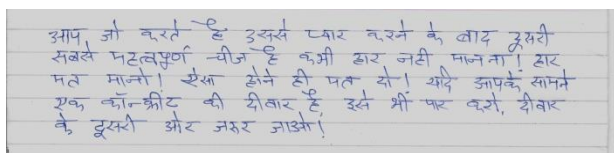 आप जो करते हैं उससे प्यार करने के बाद दूसरी
सबसे महत्वपूर्ण चीज है कभी हार नही मानना! हार
मत मानो! ऐसा होने ही मत दो! यदि आपके सामने
एक कॉन्क्रीट की दीवार है, उसे भी पार करो, दीवार
के दूसरी ओर जरुर जाओ!